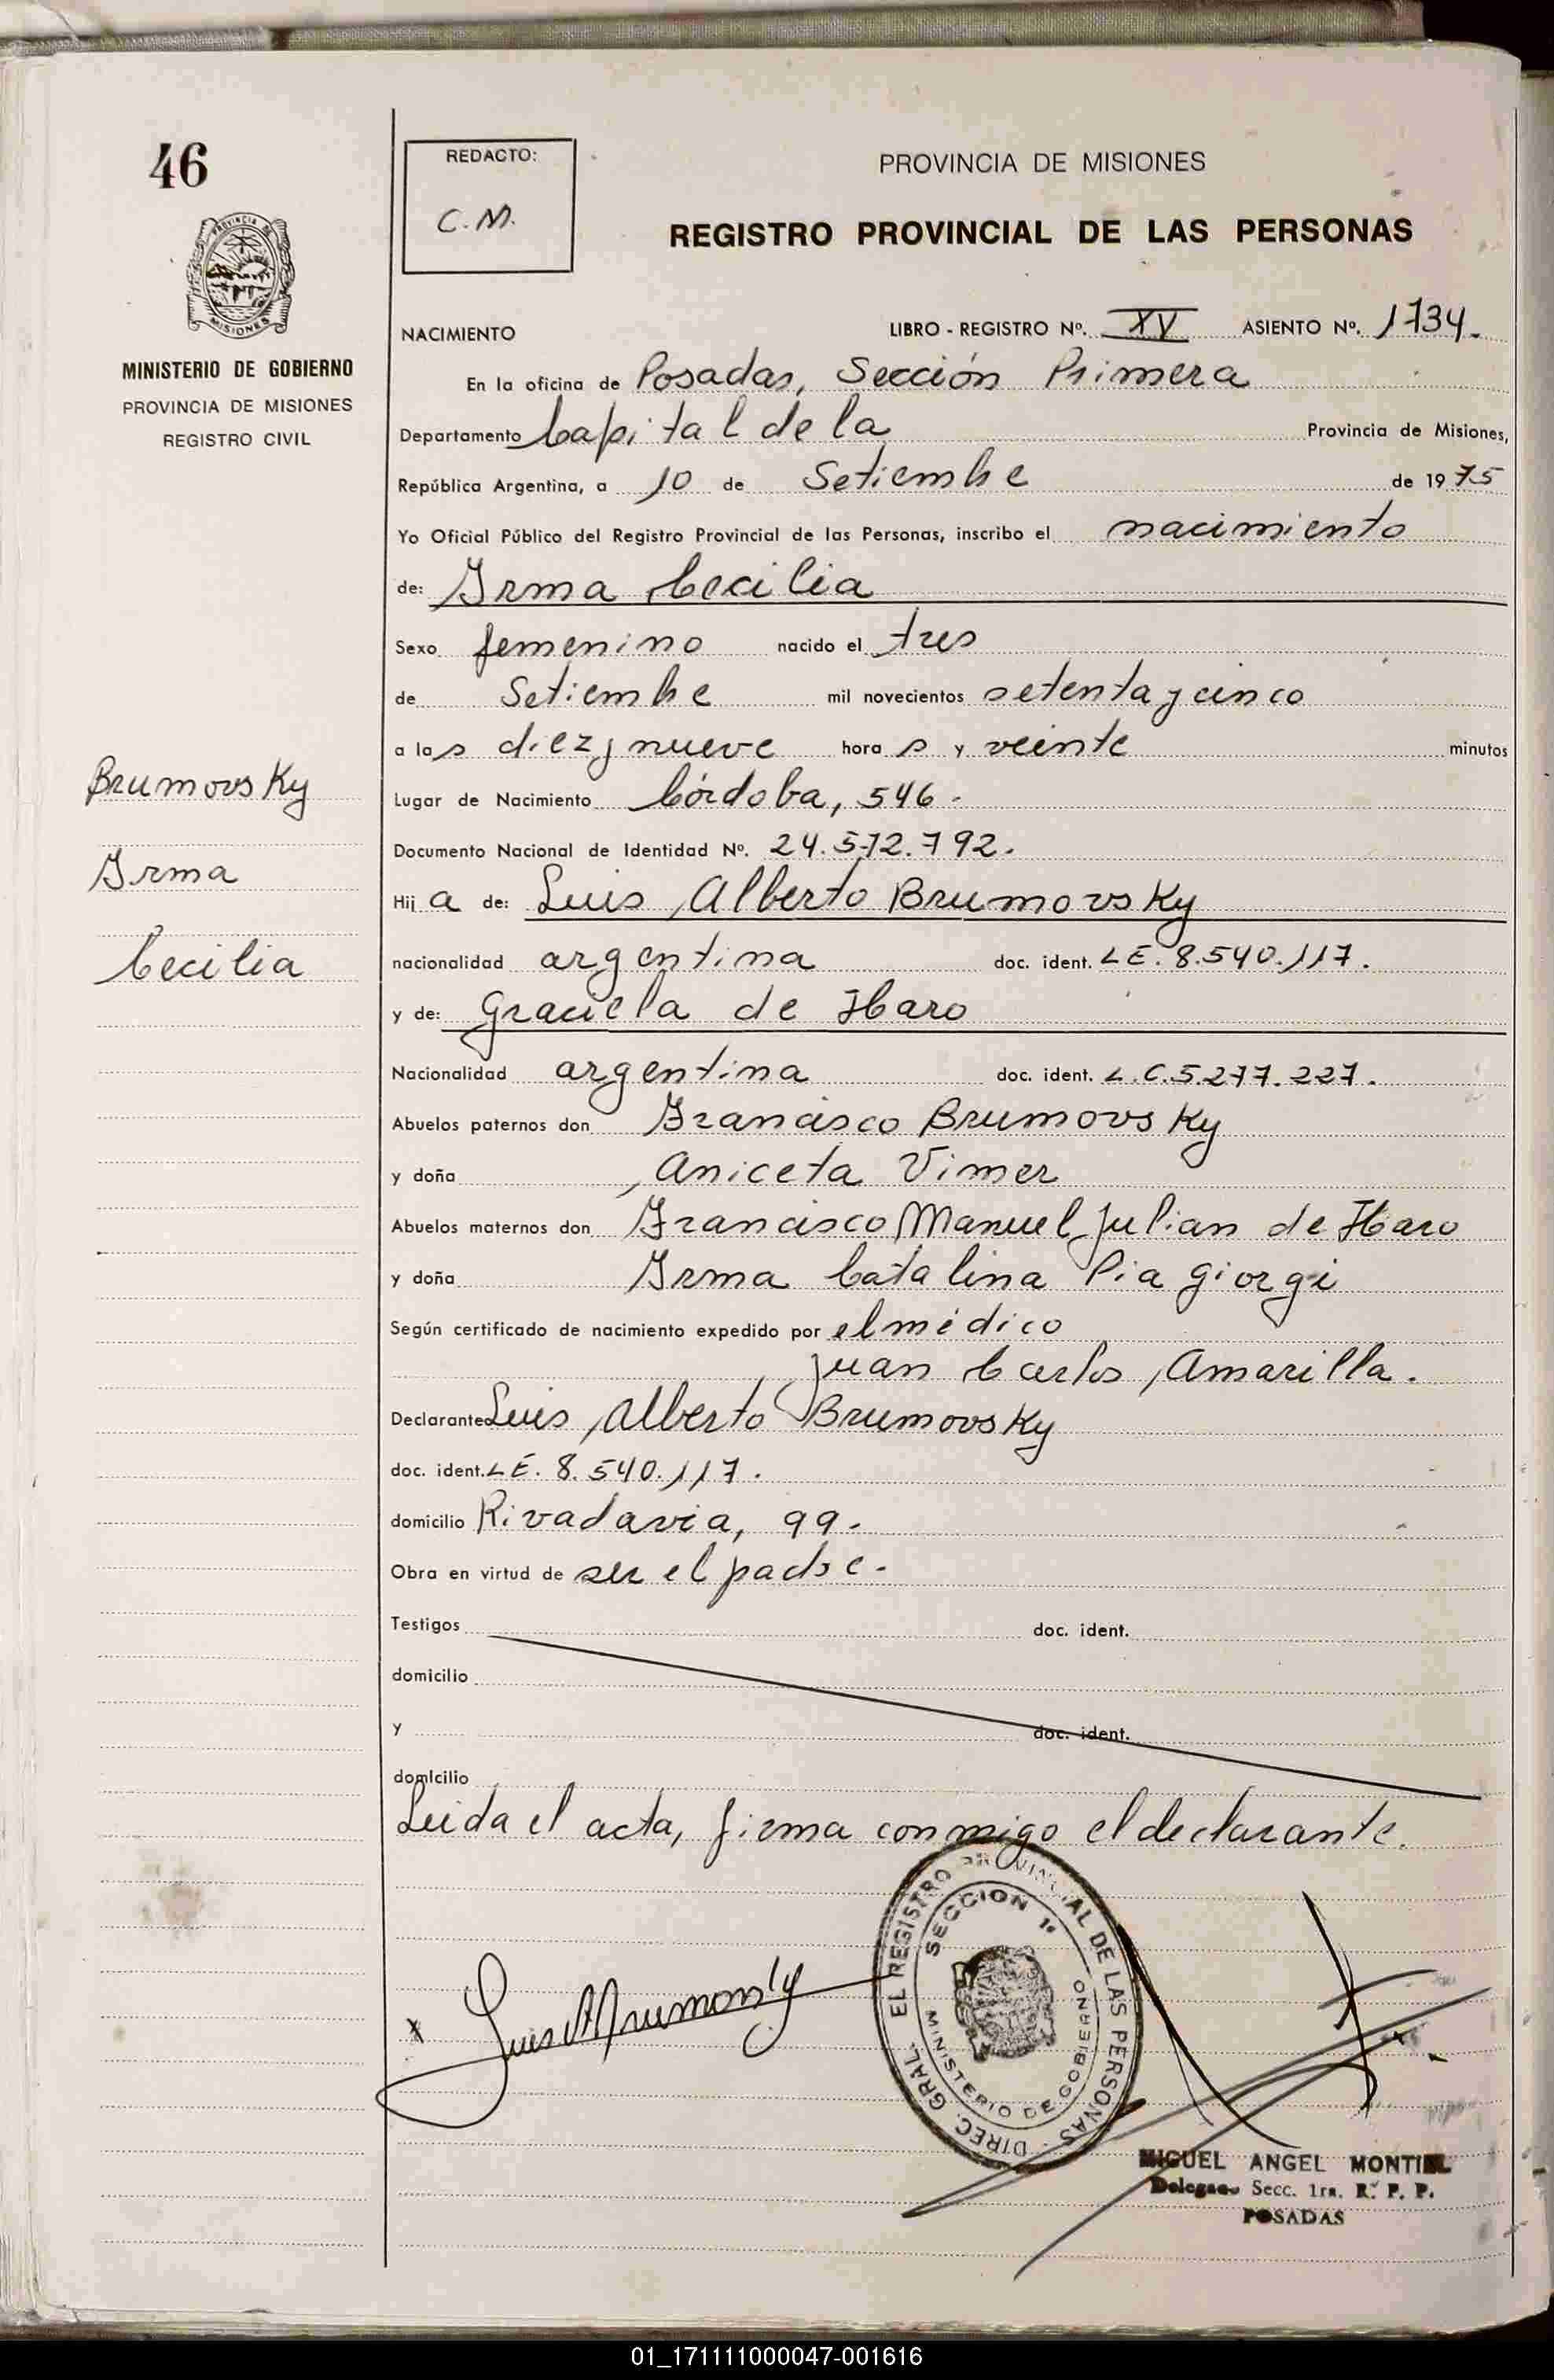 46
REDACTO:
C.M.
PROVINCIA DE MISIONES
REGISTRO PROVINCIAL DE LAS PERSONAS
PROVINCIA DE
MISIONES
MINISTERIO DE GOBIERNO
PROVINCIA DE MISIONES
REGISTRO CIVIL
NACIMIENTO LIBRO - REGISTRO Nº. XV ASIENTO Nº. 1734.
En la oficina de Posadas, Sección Primera
Departamento Capital de la Provincia de Misiones,
República Argentina, a 10 de Setiembre de 1975
Yo Oficial Público del Registro Provincial de las Personas, inscribo el nacimiento
de: Irma Cecilia
Sexo femenino nacido el tres
de Setiembre mil novecientos setenta y cinco
a las diez y nueve horas y veinte minutos
Brumovsky
Irma
Cecilia
Lugar de Nacimiento Córdoba, 546.
Documento Nacional de Identidad Nº. 24.572.792.
Hija de: Luis Alberto Brumovsky
nacionalidad argentina doc. ident. LE. 8.540.117.
y de: Graciela de Haro
Nacionalidad argentina doc. ident. L.C. 5.277.227.
Abuelos paternos don Francisco Brumovsky
y doña Aniceta Vimer
Abuelos maternos don Francisco Manuel Julian de Haro
y doña Irma Catalina Pia Giorgi
Según certificado de nacimiento expedido por el médico
Juan Carlos Amarilla.
Declarante Luis Alberto Brumovsky
doc. ident. LE. 8.540.117.
domicilio Rivadavia, 99.
Obra en virtud de ser el padre.
Testigos doc. ident.
domicilio
y doc. ident.
domicilio
Leida el acta, firma conmigo el declarante.
x Luis A Brumovsky
DIREC. GRAL. EL REGISTRO PROVINCIAL DE LAS PERSONAS
SECCION 1ª
MINISTERIO DE GOBIERNO
MIGUEL ANGEL MONTIEL
Delegado Secc. 1ra. R. P. P.
POSADAS
01_171111000047-001616